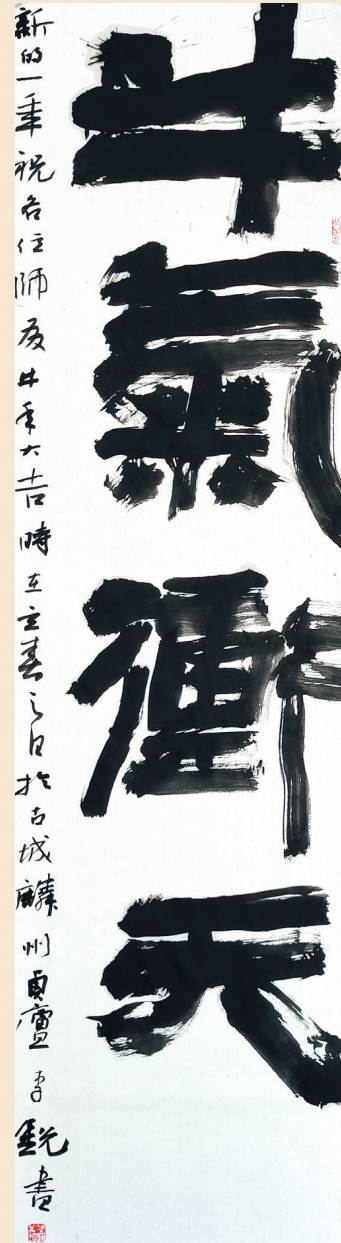 牛氣衝天
新的一年祝各位師友牛年大吉時在立春之日於古城麟州貞廬李銳書